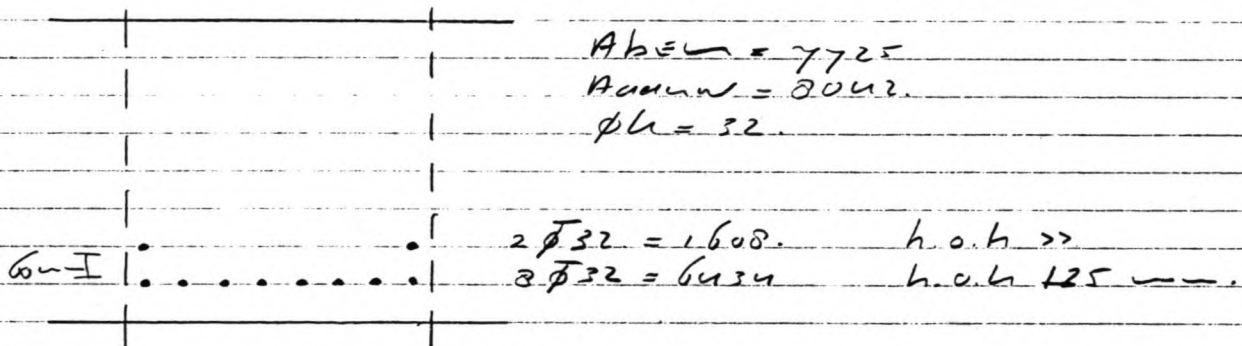 Aben = 7725
Aaanw = 8042.
øk = 32.
2 ø32 = 1608. h.o.h >>
8 ø32 = 6434 h.o.h 125 mm.